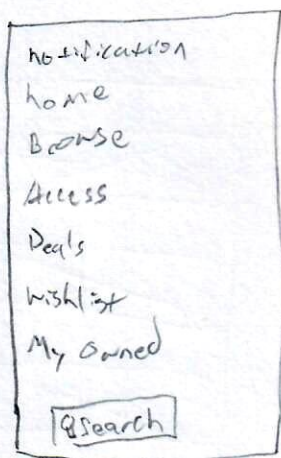 notification
home
Browse
Access
Deals
wishlist
My owned
Search